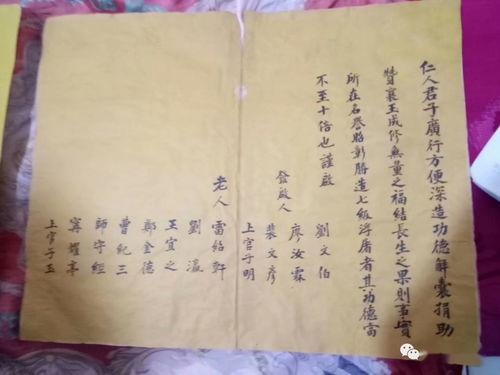 仁人君子廣行方便深造功德解囊捐助
贊襄玉成修無量之福結長生之果則事實
所在名譽昭彰勝造七級浮屠者其功德當
不至十倍也謹啟
劉文伯
廖汝霖
發啟人
裴文彥
上官子明
老人
雷紹軒
劉瀛
王宜之
郭金德
曹紀三
師守經
甯耀亭
上官子玉